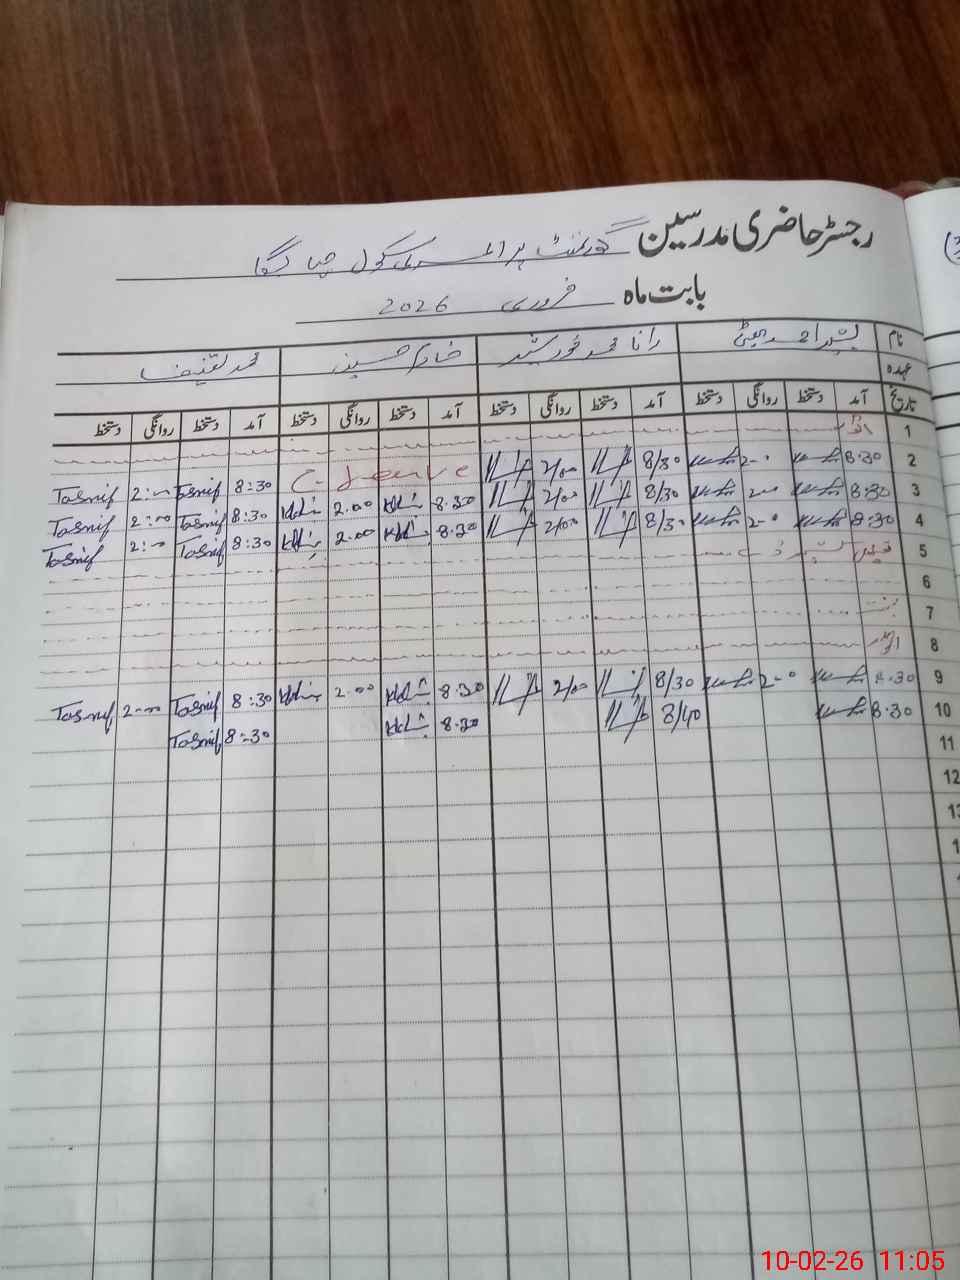 رجسٹر حاضری مدرسین گورنمنٹ پرائمری سکول
بابت ماہ فروری 2026
نام بشیر احمد بھٹی رانا محمد خورشید خادم حسین محمد تصنیف
عہدہ
تاریخ آمد دستخط روانگی دستخط آمد دستخط روانگی دستخط آمد دستخط روانگی دستخط آمد دستخط روانگی دستخط
1 اتوار
2 8:30 2-0 8/30 2/00 C. Leave 8:30 Tasnif 2:00 Tasnif
3 8:30 2-0 8/30 2/00 8.30 2.00 8:30 Tasnif 2:00 Tasnif
4 8:30 2-0 8/30 2/00 8.30 2.00 8:30 Tasnif 2:00 Tasnif
5 یوم کشمیر ڈے
6
7 ہفتہ
8 اتوار
9 8.30 2-0 8/30 2/00 8.30 2.00 8:30 Tasnif 2:00 Tasnif
10 8.30 8/40 8.30 8:30 Tasnif
11
12
10-02-26 11:05